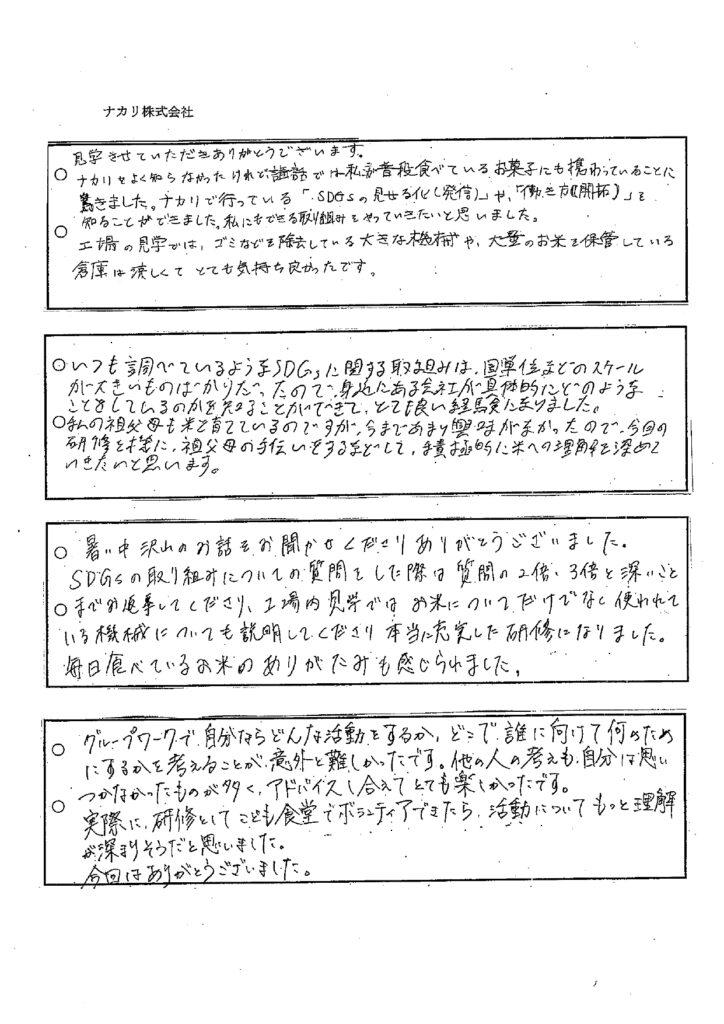 ナカリ株式会社
見学させていただきありがとうございます。
ナカリをよく知らなかったけれど講話では私が普段食べているお菓子にも携わっていることに
驚きました。ナカリで行っている「SDGsの見せる化(発信)」や、「働き方(開拓)」を
知ることができました。私にもできる取り組みをやっていきたいと思いました。
工場の見学では、ゴミなどを除去している大きな機械や、大量のお米を保管している
倉庫は涼しくてとても気持ち良かったです。
いつも調べているようなSDGsに関する取り組みは、国単位などのスケール
が大きいものばかりだったので、身近にある会社が具体的にどのような
ことをしているのかを知ることができて、とても良い経験になりました。
私の祖父母も米を育てているのですが、今まであまり興味がなかったので、今回の
研修を機に、祖父母の手伝いをするなどして、積極的に米への理解を深めて
いきたいと思います。
暑い中沢山のお話をお聞かせくださりありがとうございました。
SDGsの取り組みについての質問をした際は質問の2倍、3倍と深いこと
までお返事してくださり、工場内見学ではお米についてだけでなく使われて
いる機械についても説明してくださり本当に充実した研修になりました。
毎日食べているお米のありがたみも感じられました。
グループワークで自分ならどんな活動をするか、どこで誰に向けて何のため
にするかを考えることが意外と難しかったです。他の人の考えも自分は思い
つかなかったものが多く、アドバイスし合えてとても楽しかったです。
実際に、研修としてこども食堂でボランティアできたら、活動についてもっと理解
が深まりそうだと思いました。
今回はありがとうございました。